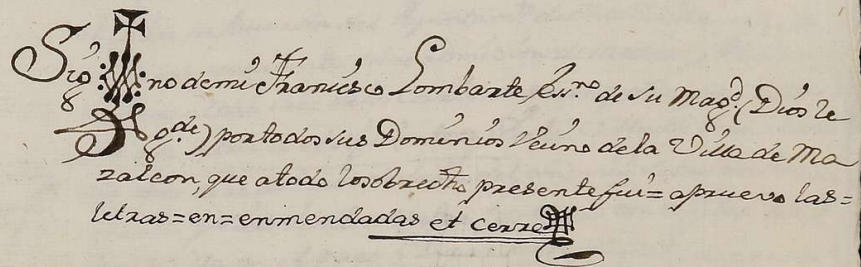 Sig no demi Francisco Lombarte Ess.no de su Mag.d (Dios le
g.de) por todos sus Dominios Vecino dela Villa de Ma
zaleon, que atodo losobredho presente fui = apruevo las =
letras = en = enmendadas et cerre